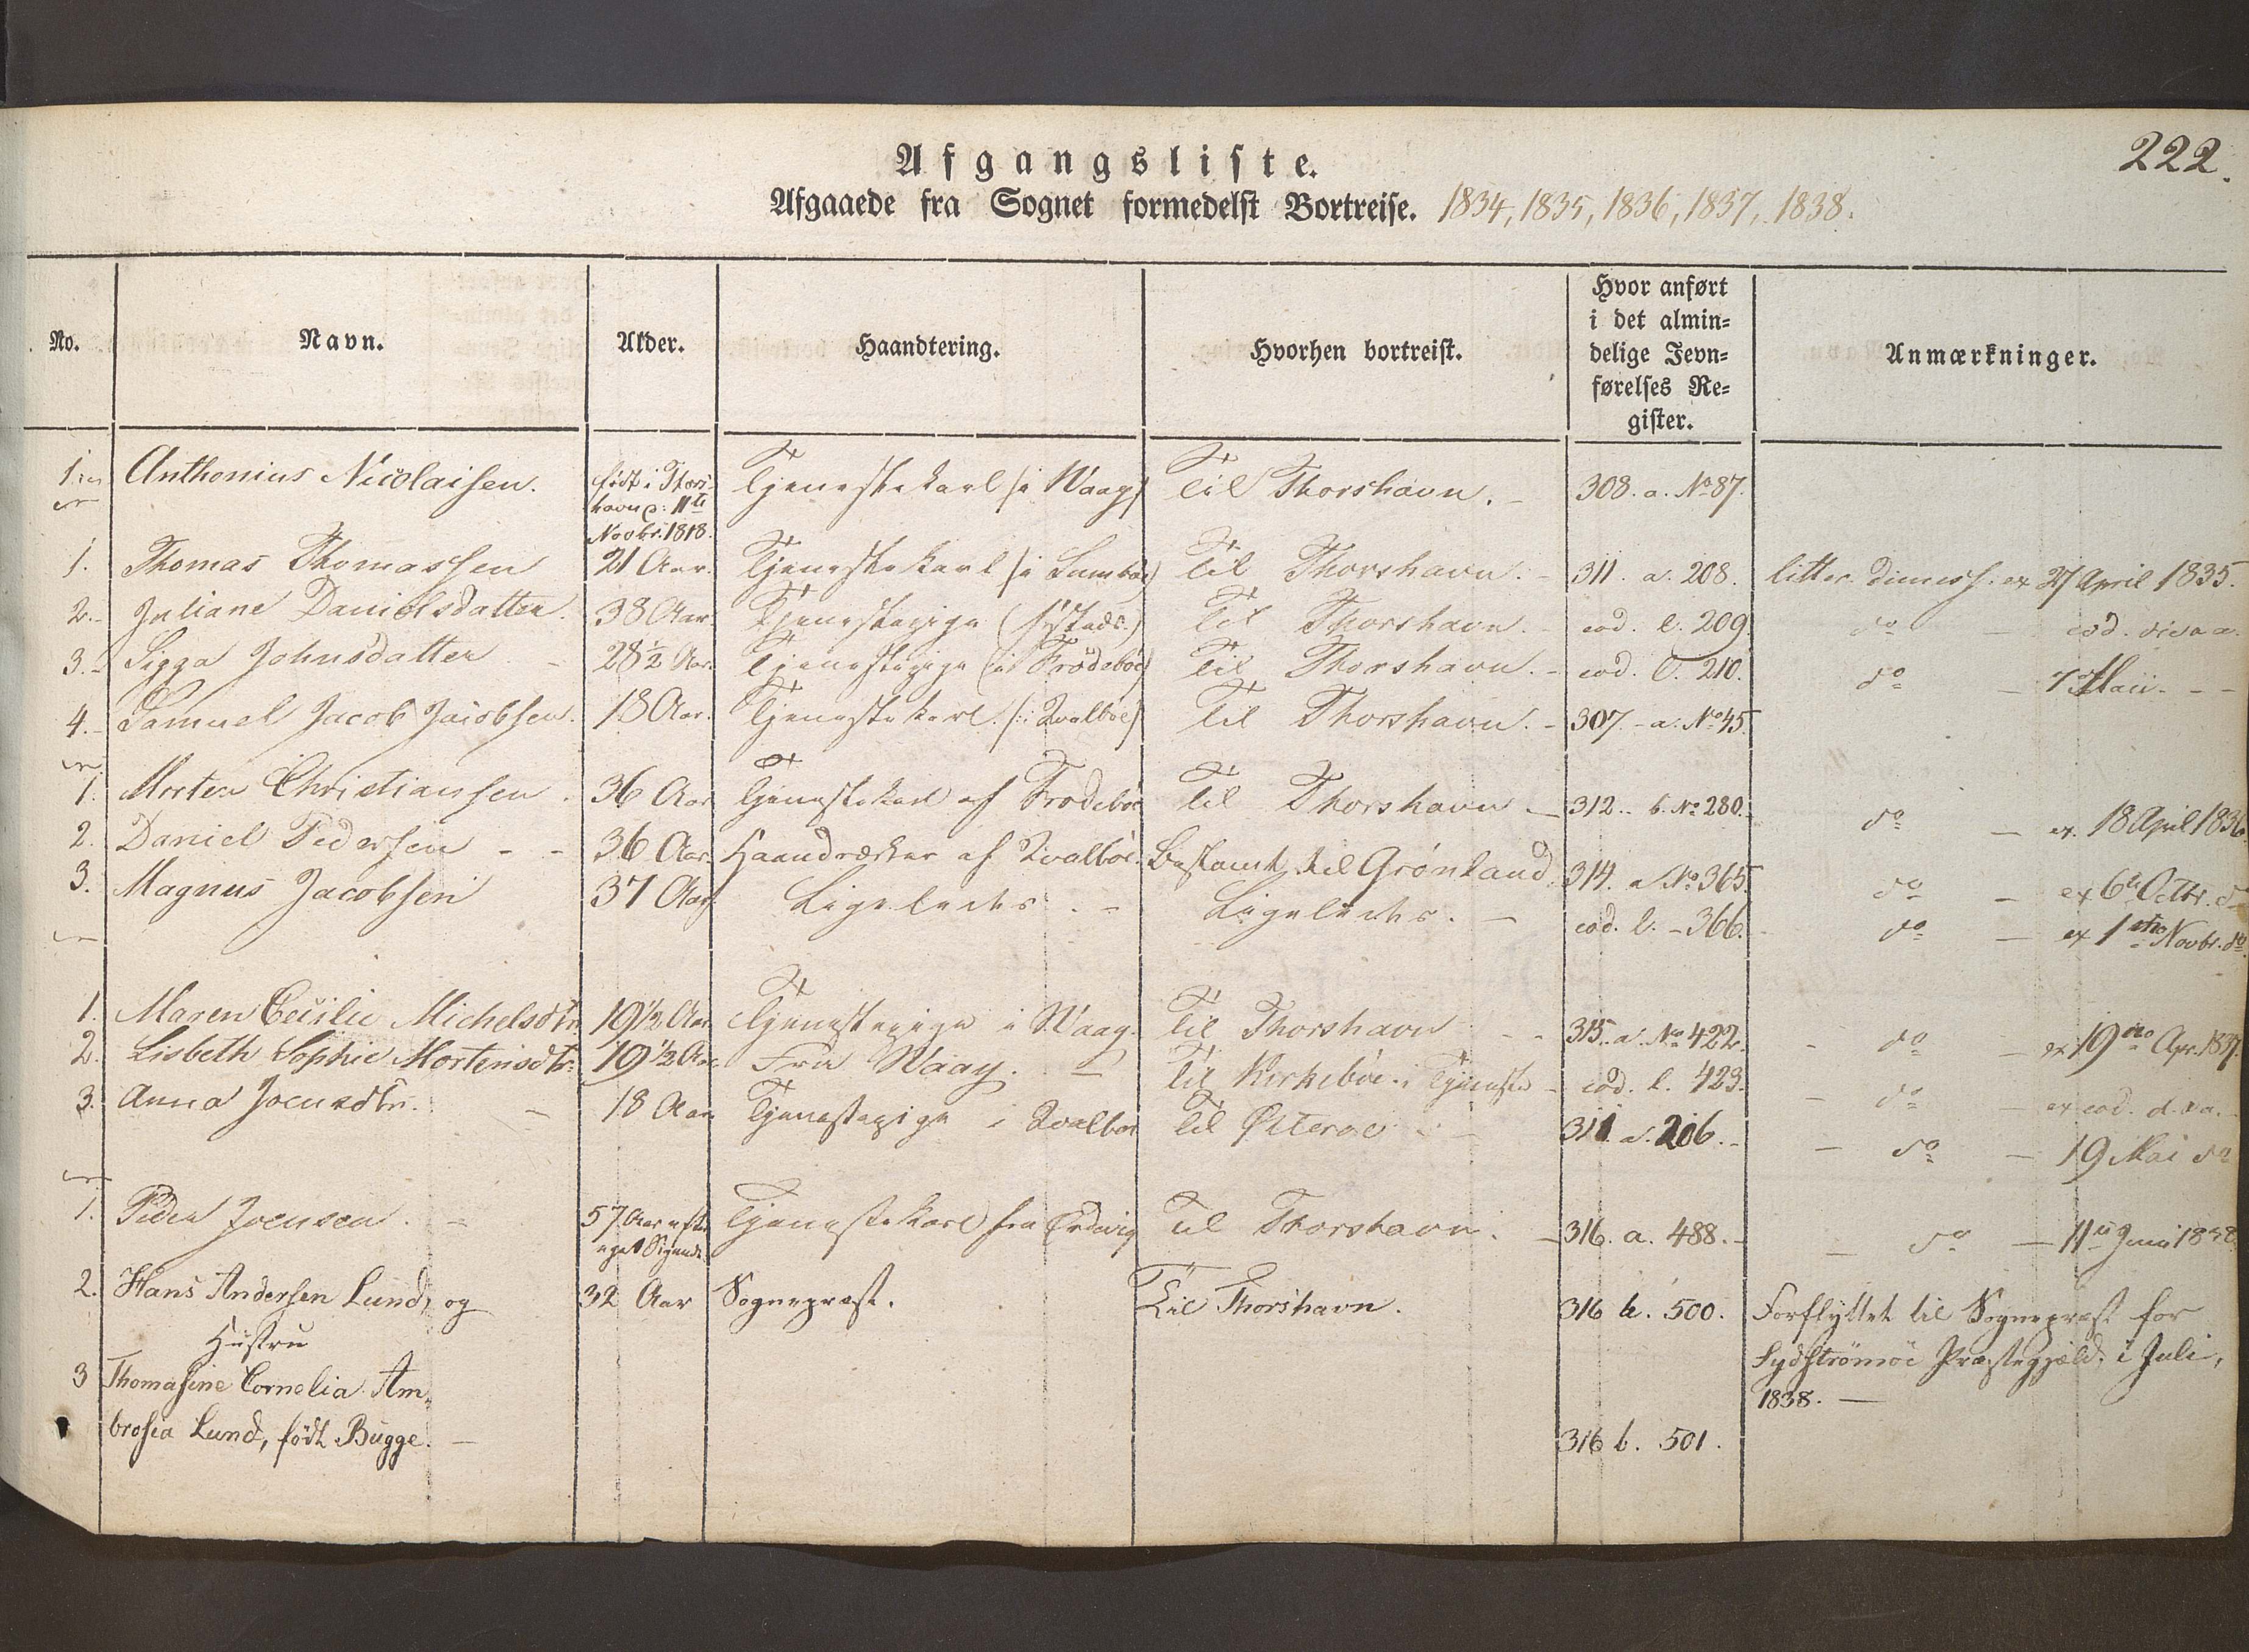 222.
Afgangsliste.
Afgaaede fra Sognet formedelst Bortreise. 1834, 1835, 1836, 1837, 1838.
No. Navn. Alder. Haandtering. Hvorhen bortreist. Hvor anført i det almin= delige Jevn= førelses Re= gister. Anmærkninger.
1. Anthonius Nicolaisen. født i Thors- havn 11te Novbr. 1818. Tjenestekarl (i Waag) Til Thorshavn. - 308. a. No 87.
1. Thomas Thomassen 21 Aar. Tjenestekarl (i Sumbøe) Til Thorshavn. - 311. a. 208. litter. dimess. ex 27 April 1835.
2. Juliane Danielsdatter. 38 Aar. Tjenestepige (systeds.) Til Thorshavn. eod. l. 209. do - eod. die a a.
3. Sigga Johnsdatter - 28 1/2 Aar. Tjenestepige (i Frodebøe) Til Thorshavn. - eod. l. 210. do - 7 Maii. - -
4. Samuel Jacob Jacobsen. 18 Aar. Tjenestekarl. (i Qvalbøe) Til Thorshavn. - 307. - a. No 45.
1. Morten Christiansen. 36 Aar Tjenestekarl af Frodebøe Til Thorshavn - 312.. b. No 280. do - ex. 18 April 1836
2. Daniel Pedersen - - 36 Aar. Haandværker af Qvalbøe. Bestemt til Grønland. 314. a No 365 do - ex 6te Octbr. do
3. Magnus Jacobsen 37 Aar Ligeledes. - Ligeledes. - eod. l. - 366. do - ex 1mo Novbr. do
1. Maren Cecilie Michelsdtr 19 1/2 Aar Tjenestepige i Waag. Til Thorshavn - - 315. a. No 422. - do - ex 19no Apr. 1837.
2. Lisbeth Sophie Mortensdtr. 19 1/2 Aar Fra Waag. - Til Kirkebøe i Tjeneste - eod. l. 423. - do - ex eod. d. & a.
3. Anna Joensdtr. - 18 Aar Tjenestepige i Qvalbøe Til Østerøe - 311 a. 206. - - do - 19 Mai do
1. Peder Joensen. - 57 Aar efter eget Sigende Tjenestekarl fra Ørdevig Til Thorshavn. - 316. a. 488. - - do - 11te Juni 1838
2. Hans Andersen Lund, og 32 Aar Sognepræst. Til Thorshavn. 316 b. 500. Forflyttet til Sognepræst for
Hustru Sydstrømøe Præstegjeld. i Juli,
3 Thomasine Cornelia Am- 1838. -
brosia Lund, født Bugge. - 316 b. 501.